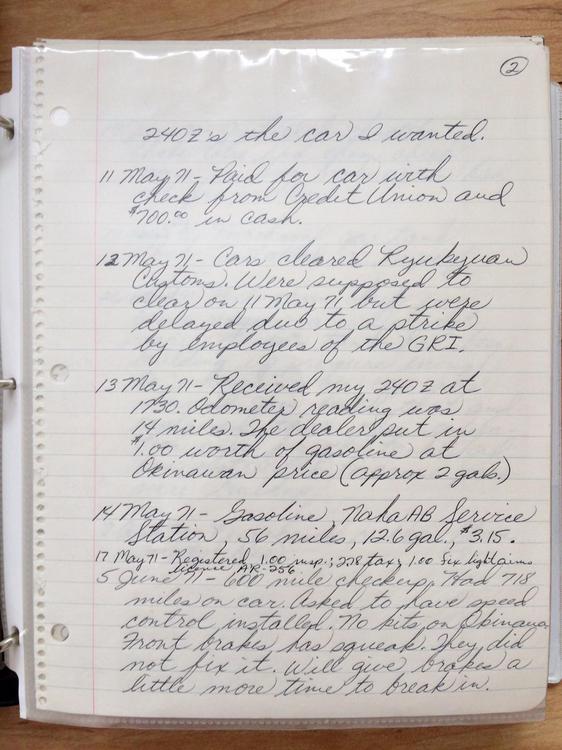 2
240Z's the car I wanted.
11 May 71 - Paid for car with
check from Credit Union and
$700.00 in cash.
12 May 71 - Cars cleared Ryukyuan
Customs. Were supposed to
clear on 11 May 71 but were
delayed due to a strike
by employees of the GRI.
13 May 71 - Received my 240Z at
1730. Odometer reading was
14 miles. The dealer put in
$1.00 worth of gasoline at
Okinawan price (approx 2 gals.)
14 May 71 - Gasoline, Naha AB Service
Station, 56 miles, 12.6 gal., $3.15.
17 May 71 - Registered 1.00 insp.; 2.78 tax; 1.00 fix light aims
license AR-256
5 June 71 - 600 mile checkup. Had 718
miles on car. Asked to have speed
control installed. No kits on Okinawa
Front brakes has squeak. They did
not fix it. Will give brakes a
little more time to break in.